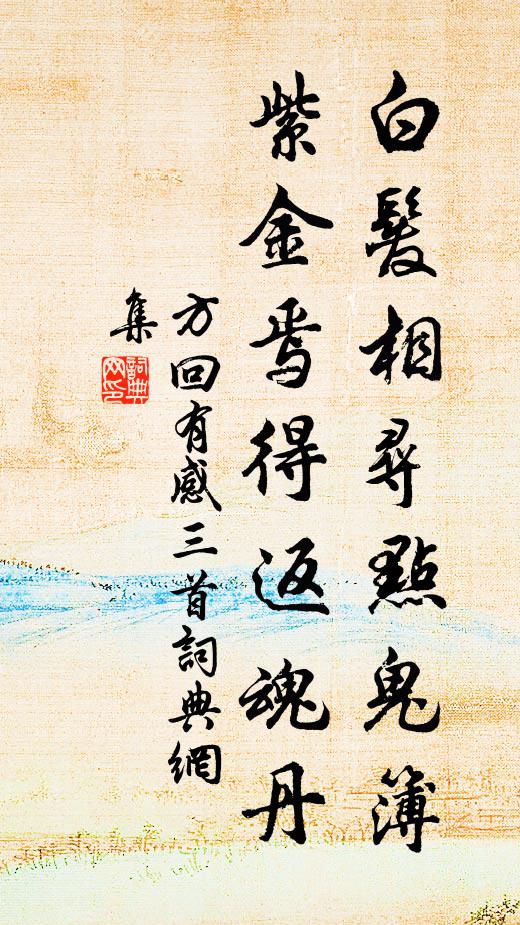 白髮相尋點鬼簿
紫金焉得返魂丹
方回有感三首詞典網
集
詞典網印